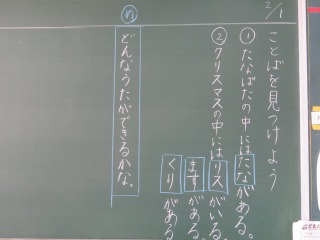 2/1
ことばを見つけよう
①たなばたの中にはたながある。
②クリスマスの中にはリスがいる。
ますがある。
くりがある
め
どんなうたができるかな。